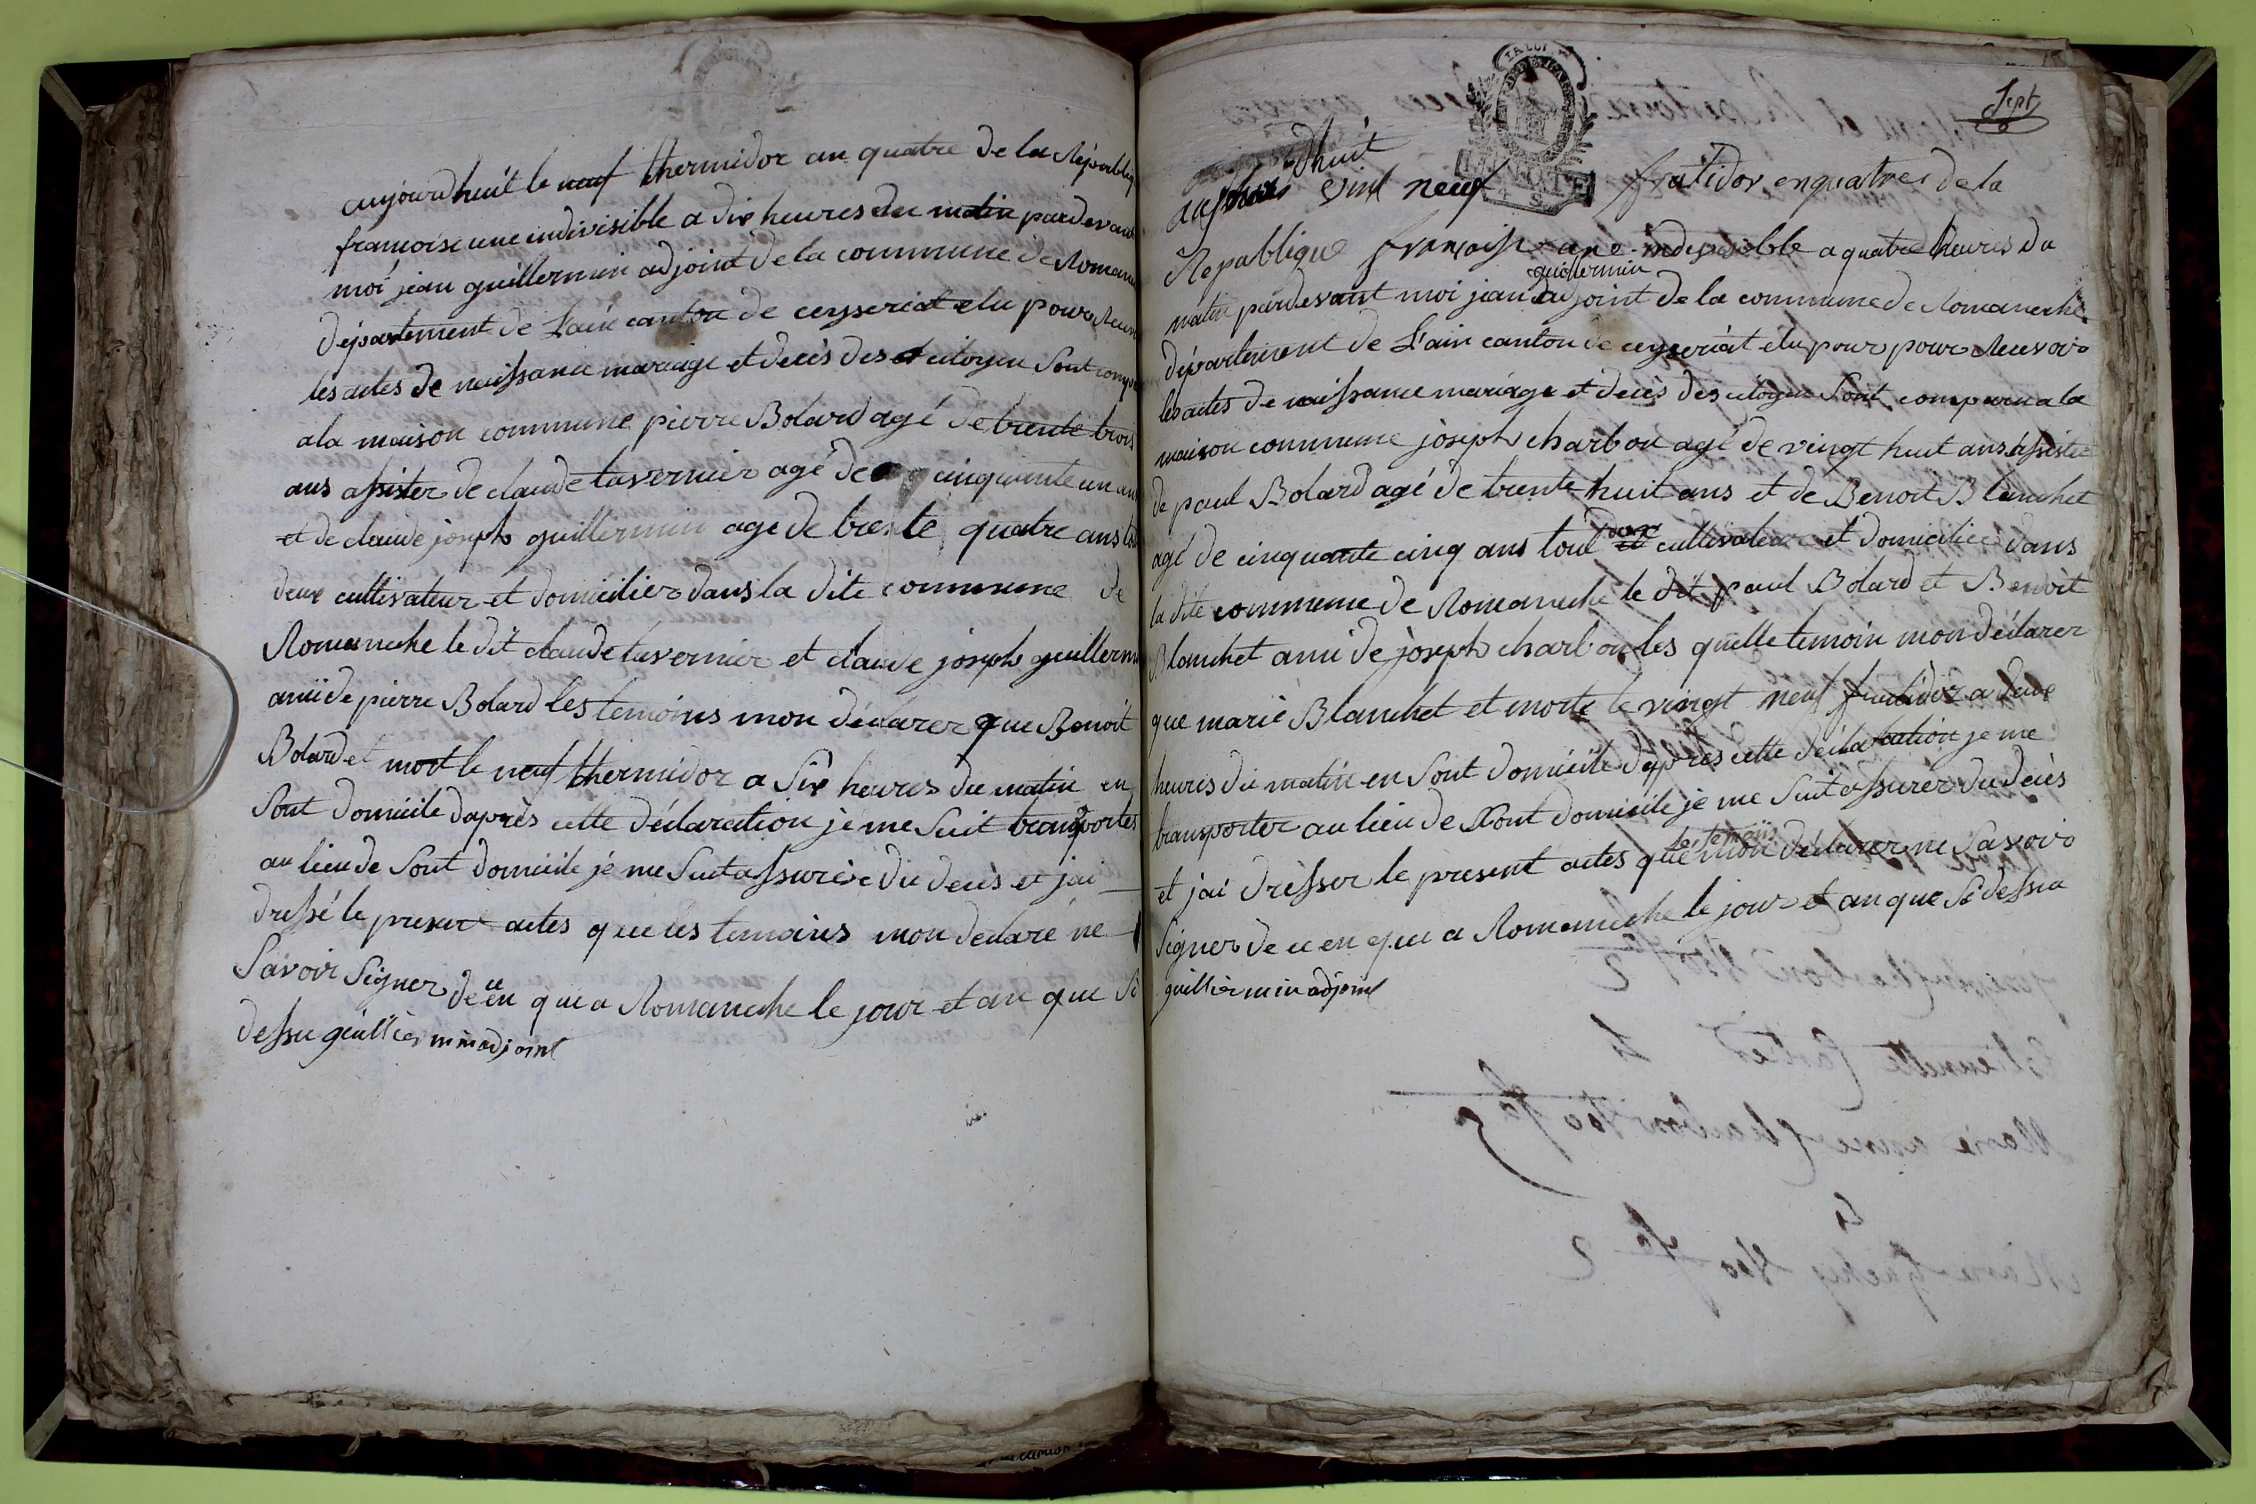 aujourdhuit le neuf thermidor an quatre de la Republiq
françoise une indivisible a dix heures du matin pardevant
moi jean guillermin adjoint de la commune de Romane
département de L'ain canton de ceyseriat elu pour Recev
les actes de naissance mariage et deces des citoyen Sont compa
a la maison commune pierre Bolard agé de trente trois
ans assister de claude tavernier agé de cinquante un ans
et de claude joseph guillermin age de trente quatre ans tou
deux cultivateur et domicilier dans la dite commune de
Romaneche le dit claude tavernier et claude joseph guillermi
amii de pierre Bolard les temoins mon déclarer que Benoit
Bolard et mort le neuf thermidor a Six heures du matin en
Sont domicile daprès cette déclaration je me Suit transportes
au lieu de Sont domicile je me Suit assurére du deces et jai
dressé le present actes que les temoins mon declaré ne
Savoir Signer de ce en que a Romaneche le jour et an que Si
dessu guillermin adjoint
Sept
aujourdhuit vint neuf frutidor enquatre de la
Republique françoise une indivisible a quatre heures du
matin pardevant moi jean guillermin adjoint de la commune de Romaneche
département de L'ain canton de ceyseriat élu pour pour Recevoir
les actes de naissance mariage et deces des citoyen Sont comparu a la
maison commune joseph charbon agé de vingt huit ans assister
de paul Bolard agé de trente huit ans et de Benoit Blanchet
agé de cinquante cinq ans tout deux cultivateur et domicilié dans
la dite commune de Romaneche le dit paul Bolard et Benoit
Blanchet ami de joseph charbon les quelle temoin mon déclarer
que marie Blanchet et morte le vingt neuf frutidor a deux
heures du matin en Sont domicile daprès cette déclaration je me
transporter au lieu de Sont domicile je me Suit assurér du deces
et jai dresser le present actes que les temoins mon déclarer ne Savoir
Signer de ce en que a Romaneche le jour et an que Si dessu
guillermin adjoint